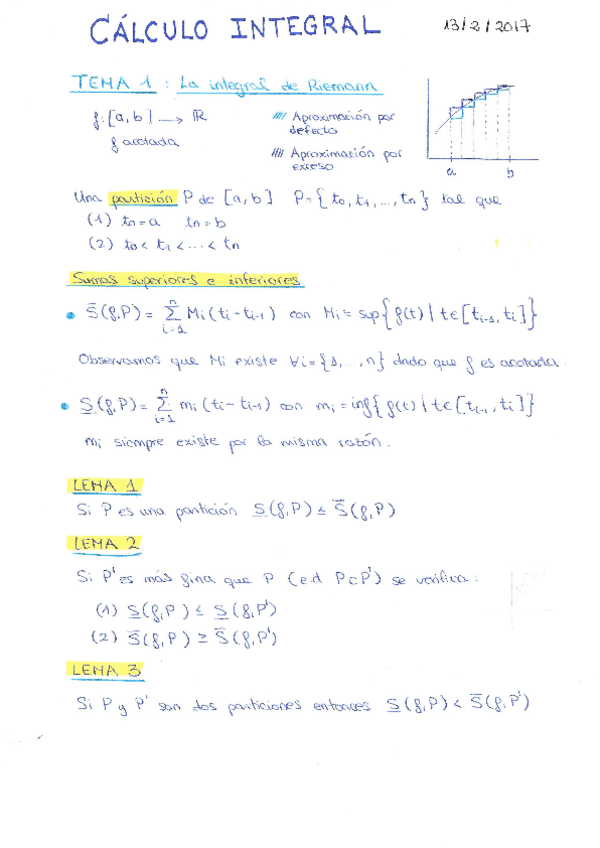 CÁLCULO INTEGRAL
13/2/2017
TEMA 1 : La integral de Riemann
f: [a, b] → ℝ
f acotada
//// Aproximación por defecto
//// Aproximación por exceso
a b
Una partición P de [a, b] P = {t₀, t₁, ..., tₙ} tal que
(1) t₀ = a tₙ = b
(2) t₀ < t₁ < ... < tₙ
Sumas superiores e inferiores
• S̄(f,P) = Σⁿᵢ₌₁ Mᵢ (tᵢ - tᵢ₋₁) con Mᵢ = sup{f(t) | t ∈ [tᵢ₋₁, tᵢ]}
Observamos que Mᵢ existe ∀i = {1, ..., n} dado que f es acotada.
• S̲(f,P) = Σⁿᵢ₌₁ mᵢ (tᵢ - tᵢ₋₁) con mᵢ = inf{f(t) | t ∈ [tᵢ₋₁, tᵢ]}
mᵢ siempre existe por la misma razón.
LEMA 1
Si P es una partición S̲(f,P) ≤ S̄(f,P)
LEMA 2
Si P' es más fina que P (e.d P⊂P') se verifica:
(1) S̲(f,P) ≤ S̲(f,P')
(2) S̄(f,P) ≥ S̄(f,P')
LEMA 3
Si P y P' son dos particiones entonces S̲(f,P) < S̄(f,P')